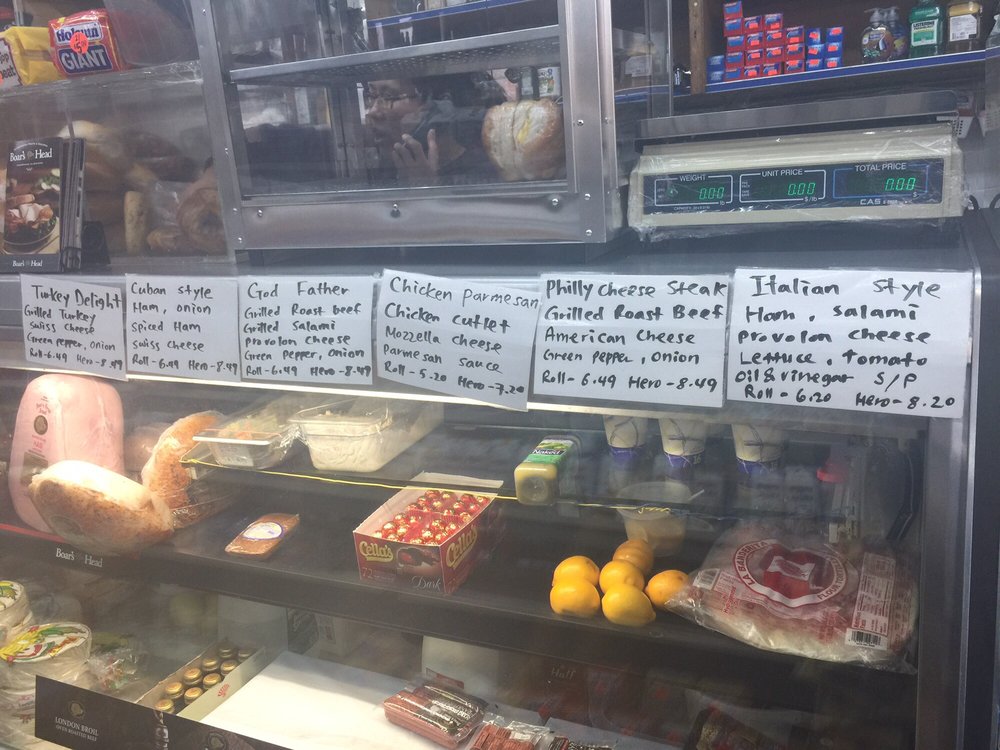 Holsum
GIANT
Boar's Head
Boar's Head
WEIGHT
UNIT PRICE
TOTAL PRICE
0.00 lb
0.00 $/lb
0.00 $
CAS
LISTERINE
Turkey Delight
Grilled Turkey
Swiss cheese
Green pepper, onion
Roll - 6.49 Hero - 8.49
Cuban style
Ham, onion
spiced Ham
swiss cheese
Roll - 6.49 Hero - 8.49
God Father
Grilled Roast beef
Grilled Salami
provolon cheese
Green Pepper, onion
Roll - 6.49 Hero - 8.49
Chicken Parmesan
Chicken Cutlet
Mozzella cheese
Parmesan sauce
Roll - 5.20 Hero - 7.20
Philly cheese Steak
Grilled Roast Beef
American Cheese
Green Pepper, onion
Roll - 6.49 Hero - 8.49
Italian Style
Ham, Salami
provolon cheese
Lettuce, Tomato
Oil & vinegar S/P
Roll - 6.20 Hero - 8.20
Naked
Cella's
Cella's
72
Dark
Boar's Head
LA BANDERITA
Half
LONDON BROIL
OVEN ROASTED BEEF